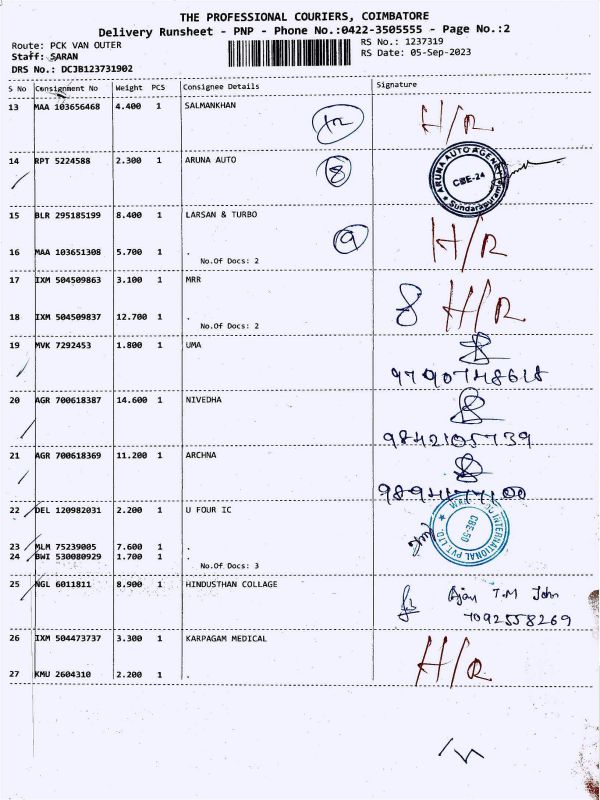 THE PROFESSIONAL COURIERS, COIMBATORE
Delivery Runsheet - PNP - Phone No.:0422-3505555 - Page No.:2
Route: PCK VAN OUTER
RS No.: 1237319
Staff: SARAN
RS Date: 05-Sep-2023
DRS No.: DCJB123731902
S No Consignment No Weight PCS Consignee Details Signature
13 MAA 103656468 4.400 1 SALMANKHAN H/R
12
14 RPT 5224588 2.300 1 ARUNA AUTO 8
ARUNA AUTO AGENCY
CBE-24
Sundarapuram
15 BLR 295185199 8.400 1 LARSAN & TURBO H/R
9
16 MAA 103651308 5.700 1 .
No.Of Docs: 2
17 IXM 504509863 3.100 1 MRR
8 H/R
18 IXM 504509837 12.700 1 .
No.Of Docs: 2
19 MVK 7292453 1.800 1 UMA
9790748618
20 AGR 700618387 14.600 1 NIVEDHA
9842105739
21 AGR 700618369 11.200 1 ARCHNA
22 DEL 120982031 2.200 1 U FOUR IC
INTERNATIONAL PVT. LTD.
CBE-50
23 MLM 75239005 7.600 1 .
24 BWI 530080929 1.700 1 .
No.Of Docs: 3
25 NGL 6011811 8.900 1 HINDUSTHAN COLLAGE
Ajay T.M John
7092558269
26 IXM 504473737 3.300 1 KARPAGAM MEDICAL
H/R
27 KMU 2604310 2.200 1 .